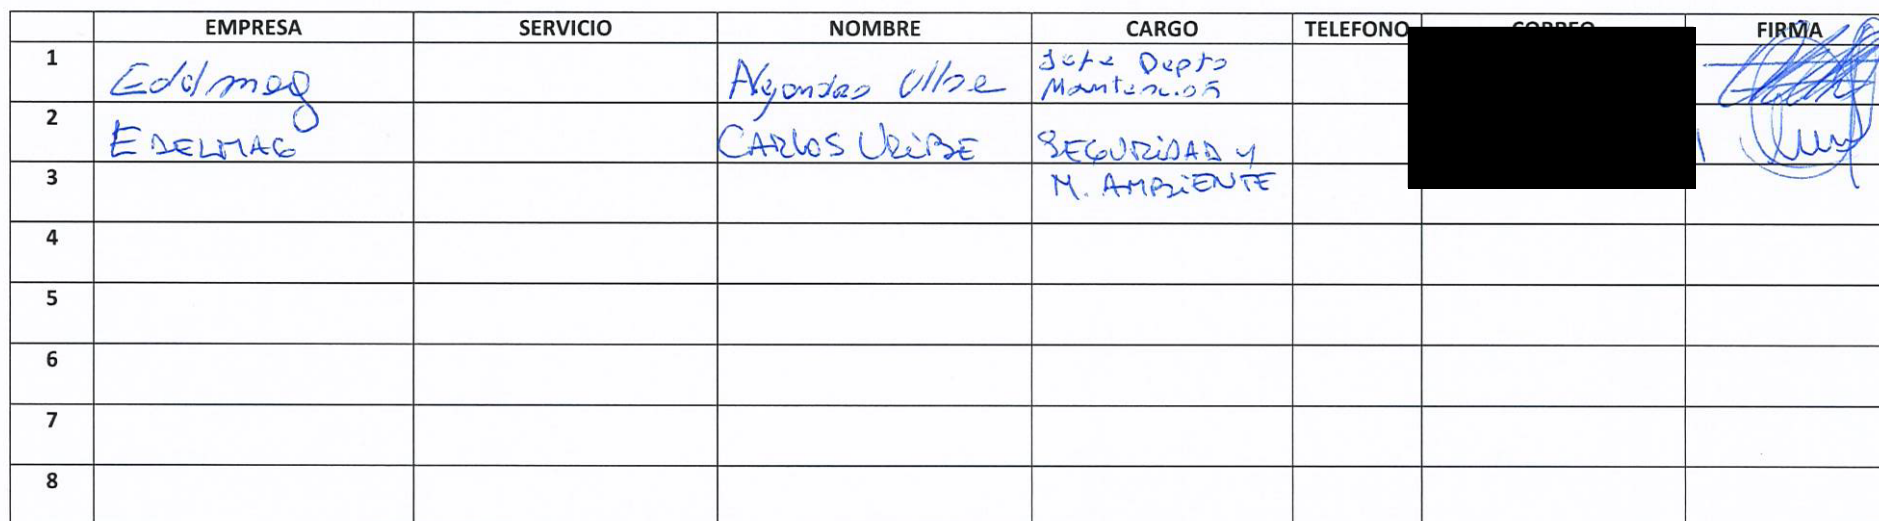 EMPRESA SERVICIO NOMBRE CARGO TELEFONO CORREO FIRMA
1 Edelmag Ulloa Jefe Depto
Mantención
2 EDELMAG CARLOS URIBE SEGURIDAD Y
3 M. AMBIENTE
4
5
6
7
8